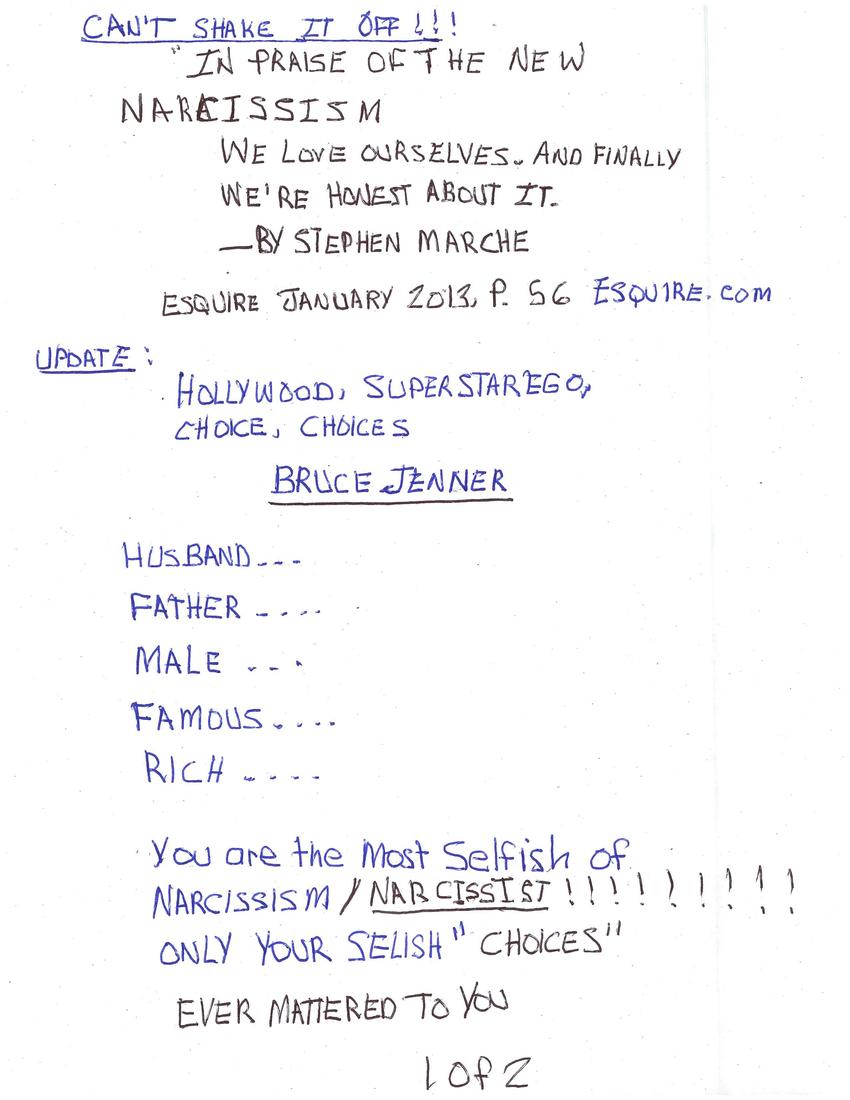 CAN'T SHAKE IT OFF !!!
"IN PRAISE OF THE NEW
NARCISSISM
WE LOVE OURSELVES. AND FINALLY
WE'RE HONEST ABOUT IT.
—BY STEPHEN MARCHE
ESQUIRE JANUARY 2013, P. 56 ESQUIRE.COM
UPDATE:
HOLLYWOOD, SUPERSTAR EGO,
CHOICE, CHOICES
BRUCE JENNER
HUSBAND---
FATHER ----
MALE ---
FAMOUS....
RICH ----
You are the Most Selfish of
NARCISSISM / NARCISSIST !!!!!!!!!!
ONLY YOUR SELISH "CHOICES"
EVER MATTERED TO YOU
1 of 2